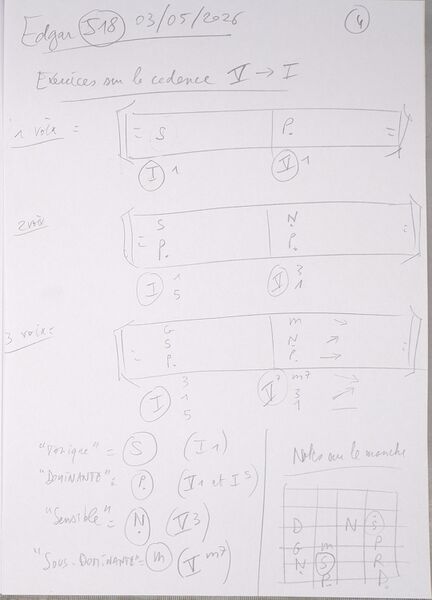 Edgar S18 03/05/2026
4
Exercices sur le cadence V → I
1 voix =
= S P. =
I 1 V 1
2 voix
= S N. =
P. P.
I 1 V 3
5 1
3 voix =
G m →
= S N. ↗ =
P. P. →
3 m7
I 1 V7 3
5 1
"Tonique" = S (I 1)
"DOMINANTE" = P. (V1 et I5)
"Sensible" = N. (V3)
"Sous-Dominante" = m (V m7)
Notes sur le manche
D N S
G m P
N. S R
P. D